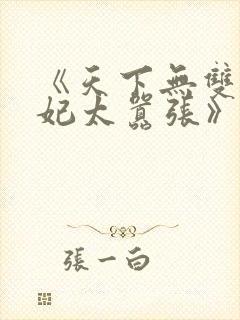 《天下無雙
妃太囂張》
張一白